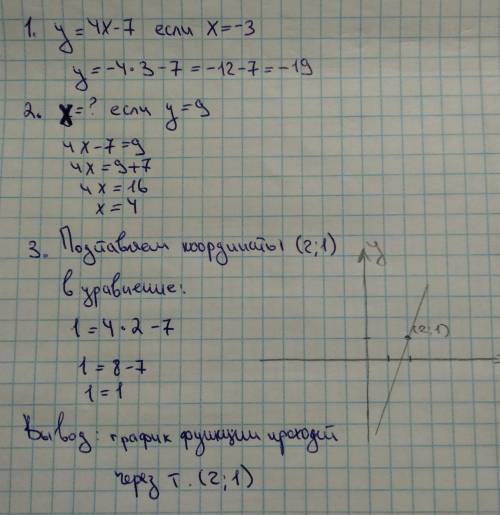 1. y = 4x - 7 если x = -3
y = -4 · 3 - 7 = -12 - 7 = -19
2. x = ? если y = 9
4x - 7 = 9
4x = 9 + 7
4x = 16
x = 4
3. Подставляем координаты (2; 1)
в уравнение:
1 = 4 · 2 - 7
1 = 8 - 7
1 = 1
Вывод: график функции проходит
через т. (2; 1)
y
(2; 1)